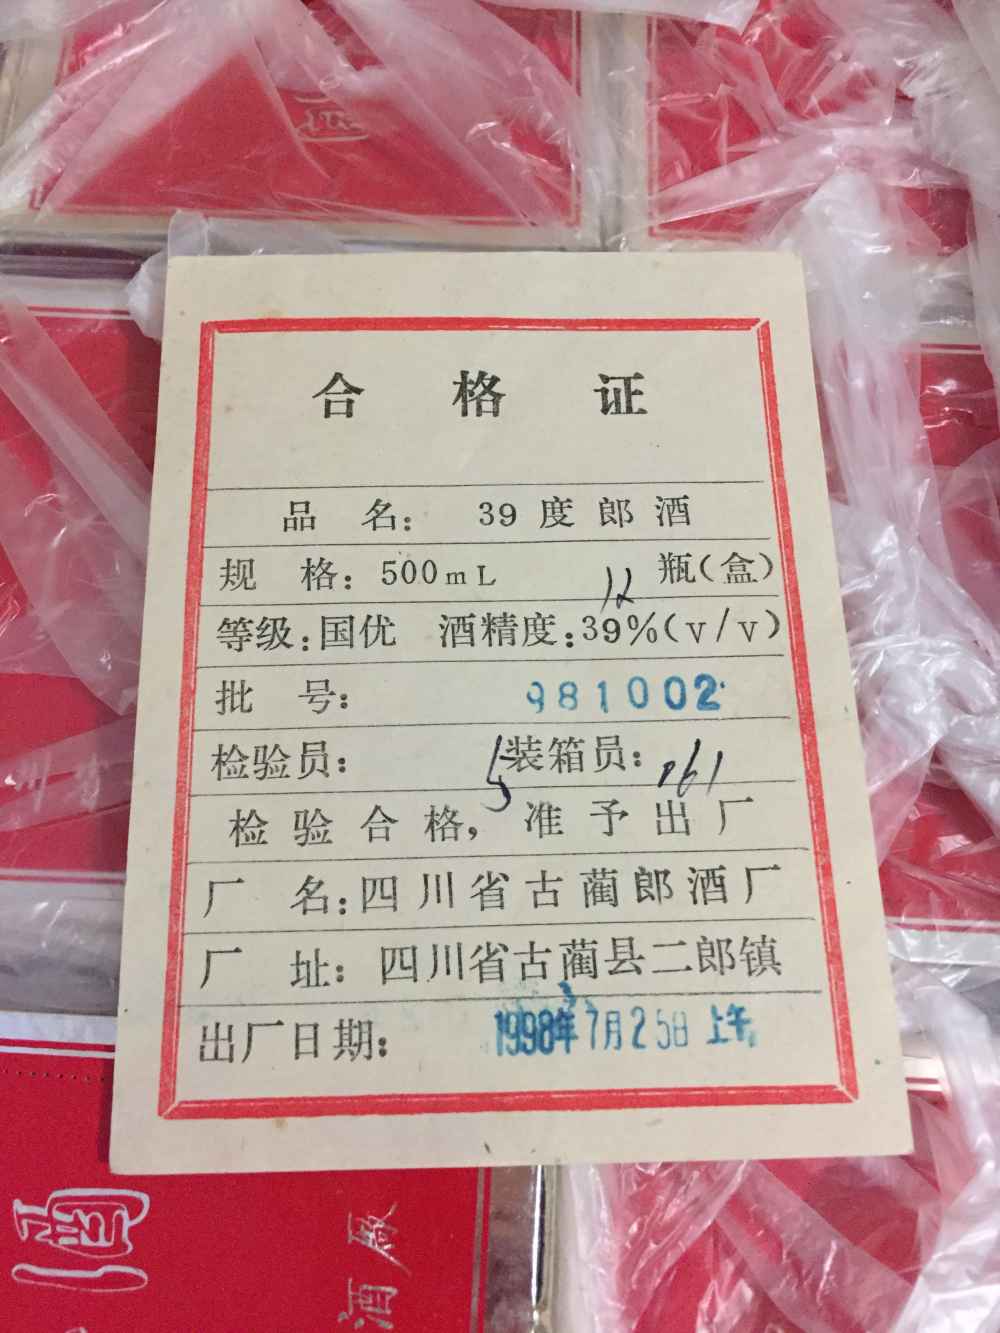 合格证
品名: 39度郎酒
规格: 500mL 12 瓶(盒)
等级:国优 酒精度:39%(v/v)
批号: 981002
检验员: 5 装箱员: 061
检验合格,准予出厂
厂名:四川省古蔺郎酒厂
厂址: 四川省古蔺县二郎镇
出厂日期: 1998年7月25日 上午
酒厰